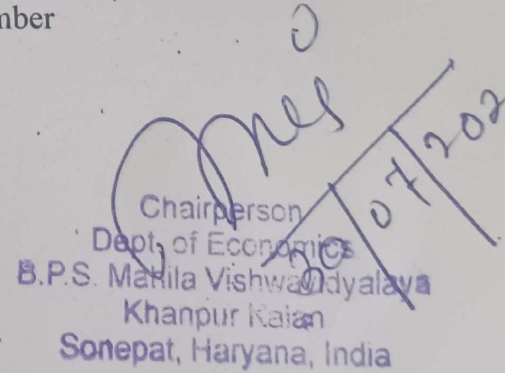 mber
Chairperson
Dept. of Economics
B.P.S. Mahila Vishwavidyalaya
Khanpur Kalan
Sonepat, Haryana, India
07/202